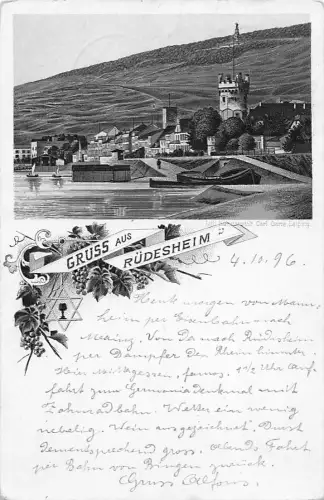 Gruss aus
Rüdesheim
4.10.96.
Heute morgen von Mann-
heim per Eisenbahn nach
Mainz. Von da nach Rüdesheim
per Dampfer den Rhein hinunter.
Hier Mittagessen, famos. Uhr Auf-
fahrt zum Germaniadenkmal mit
Zahnradbahn. Wetter ein wenig
nebelig. Wein ausgezeichnet, Durst
dementsprechend gross. Abends Fahrt
per Bahn von Bingen zurück.
Gruss Alfons.